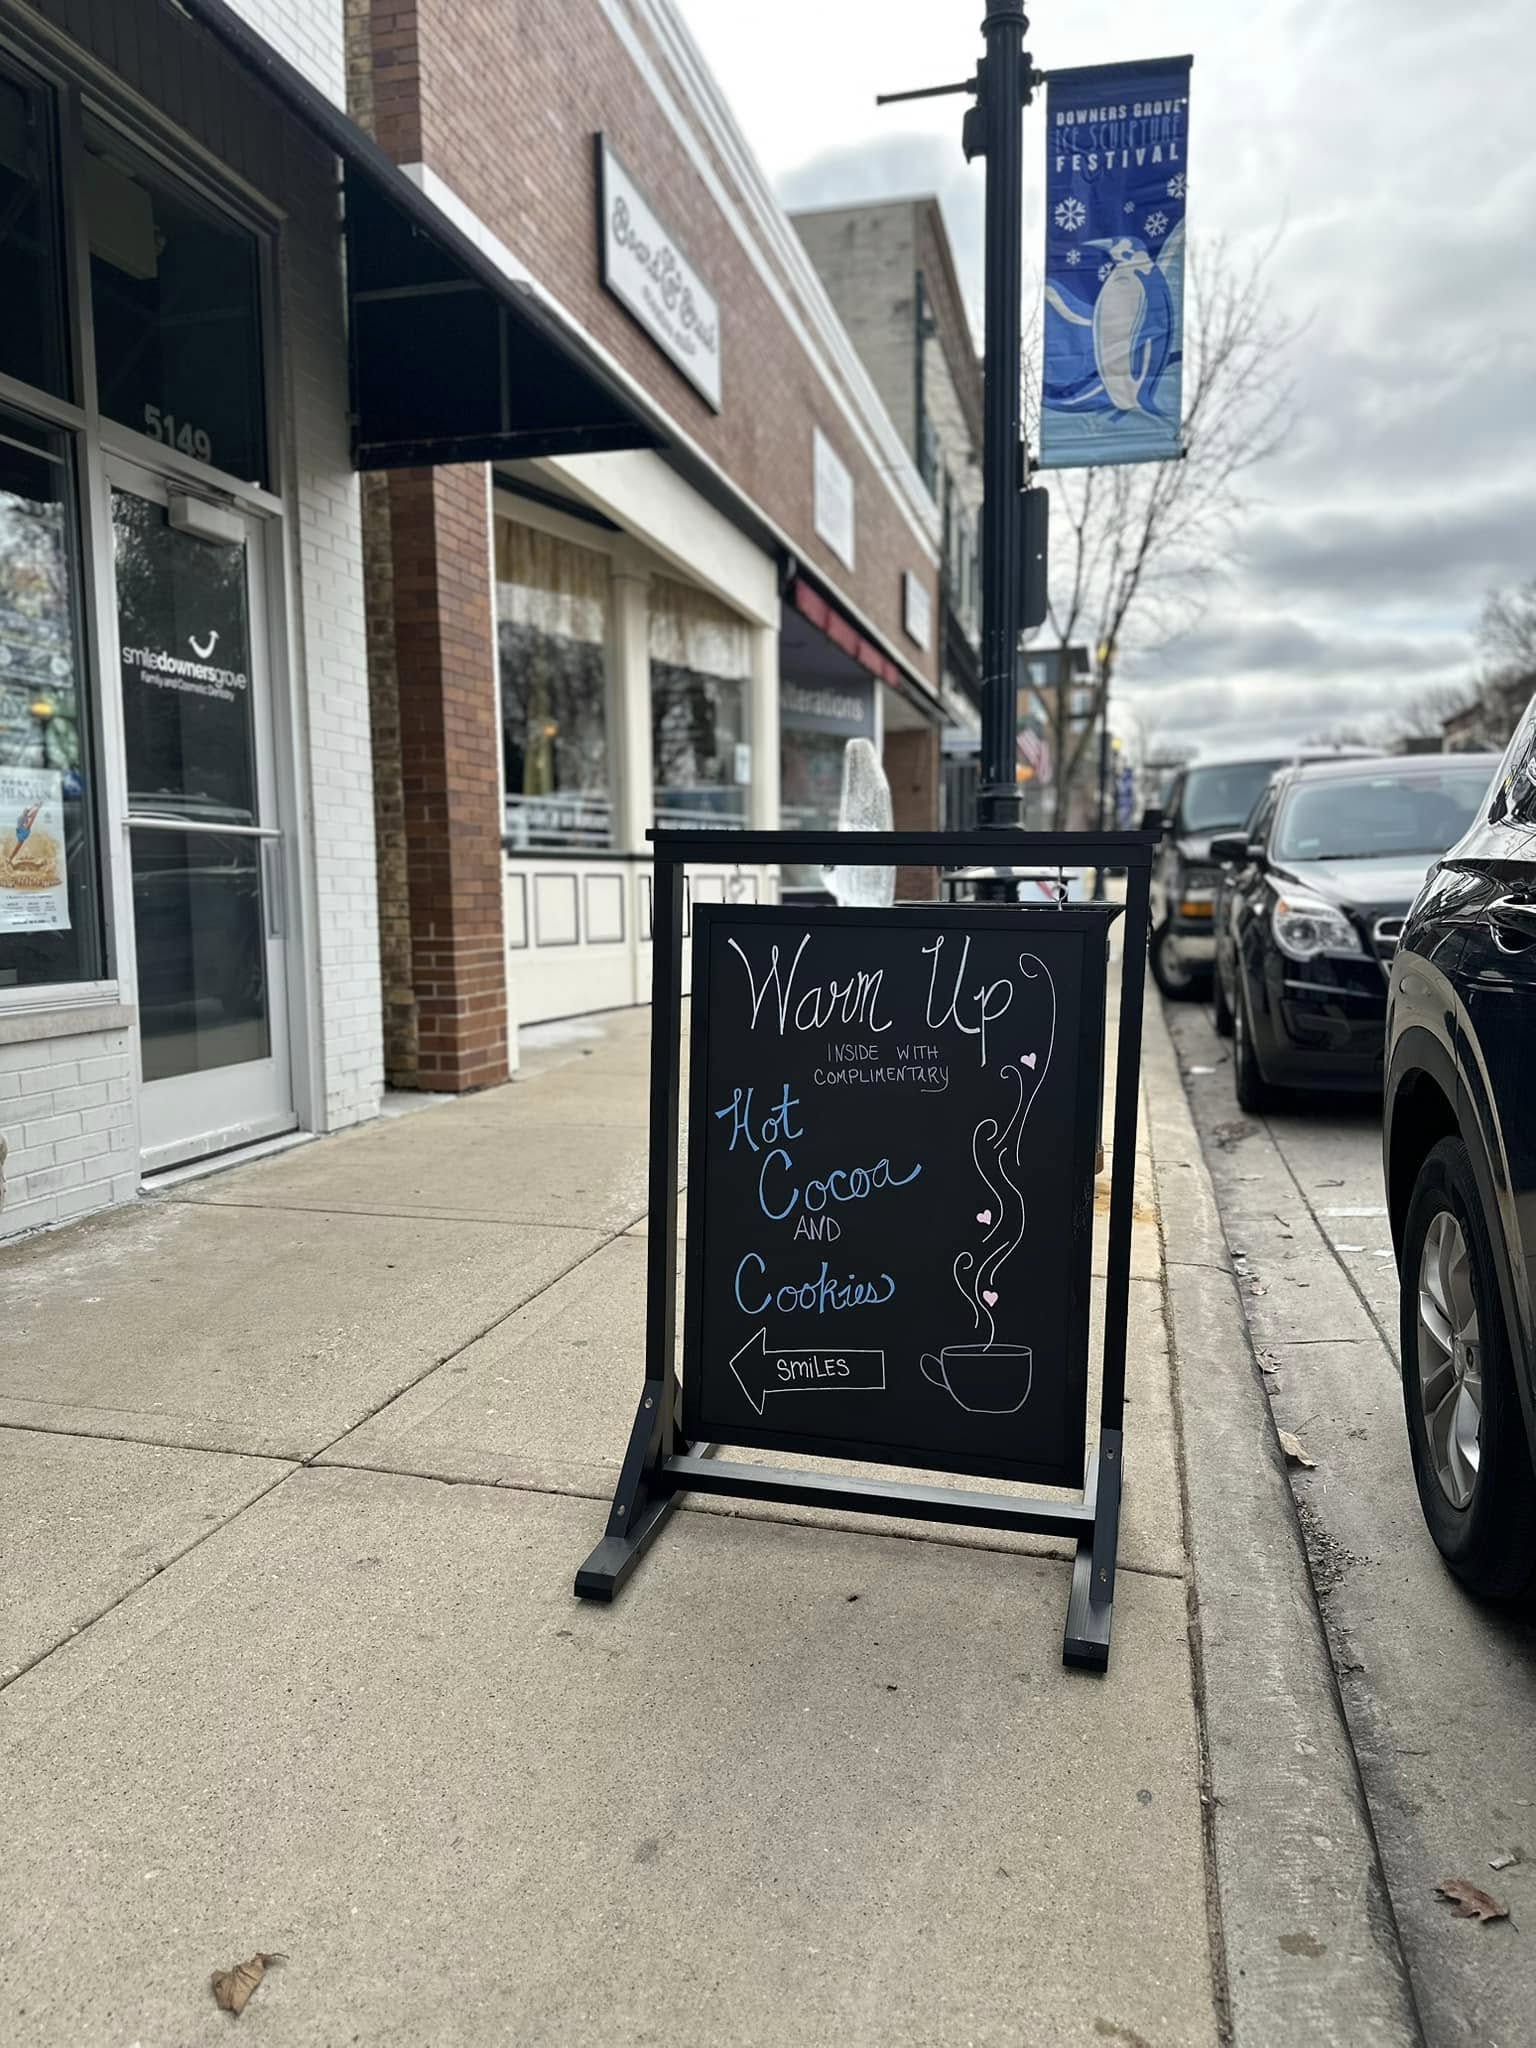 DOWNERS GROVE
ICE SCULPTURE
FESTIVAL
5149
smiledownersgrove
Family and Cosmetic Dentistry
lterations
Warm Up
INSIDE WITH
COMPLIMENTARY
Hot
Cocoa
AND
Cookies
SMiLES